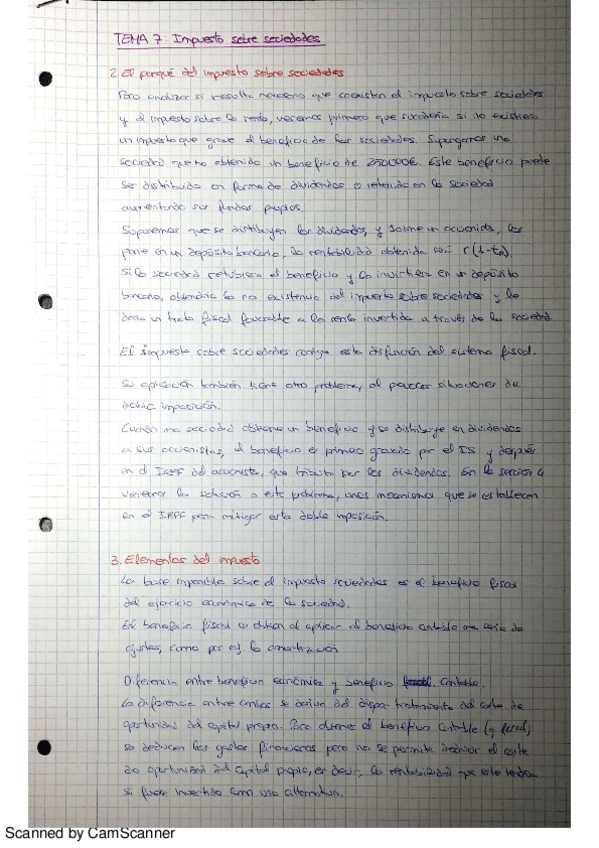 TEMA 7. Impuesto sobre sociedades
2. El porqué del impuesto sobre sociedades
Para analizar si resulta necesario que coexistan el impuesto sobre sociedades
y el impuesto sobre la renta, veremos primero que sucedería si no existiera
un impuesto que grave el beneficio de las sociedades. Supongamos una
sociedad que ha obtenido un beneficio de 250.000€. Este beneficio puede
ser distribuido en forma de dividendos o retenido en la sociedad
aumentando sus fondos propios.
Suponemos que se distribuyen los dividendos, y Jaime un accionista, los
pone en un depósito bancario, la rentabilidad obtenida será r(1-t
Si la sociedad retubiera el beneficio y lo invirtiera en un depósito
bancario, obtendría la no existencia del impuesto sobre sociedades y le
daría un trato fiscal favorable a la renta invertida a través de la sociedad.
El impuesto sobre sociedades corrige esta disfunción del sistema fiscal.
Su aplicación también tiene otro problema, al provocar situaciones de
doble imposición.
Cuando una sociedad obtiene un beneficio y se distribuye en dividendos
a sus accionistas, el beneficio es primero gravado por el IS y después
en el IRPF del accionista, que tributa por los dividendos. En la sección 4
veremos la solución a este problema, unos mecanismos que se establecen
en el IRPF para mitigar esta doble imposición.
3. Elementos del impuesto
La base imponible sobre el impuesto sociedades es el beneficio fiscal
del ejercicio económico de la sociedad.
El beneficio fiscal se obtiene al aplicar al beneficio contable una serie de
ajustes, como por ej la amortización
Diferencia entre beneficio económico y beneficio contable.
La diferencia entre ambos se deriva del dispar tratamiento del coste de
oportunidad del capital propio. Para obtener el beneficio contable (y fiscal)
se deducen los gastos financieros pero no se permite deducir el coste
de oportunidad del capital propio, es decir, la rentabilidad que este tendría
si fuera invertido como uso alternativo.
Scanned by CamScanner